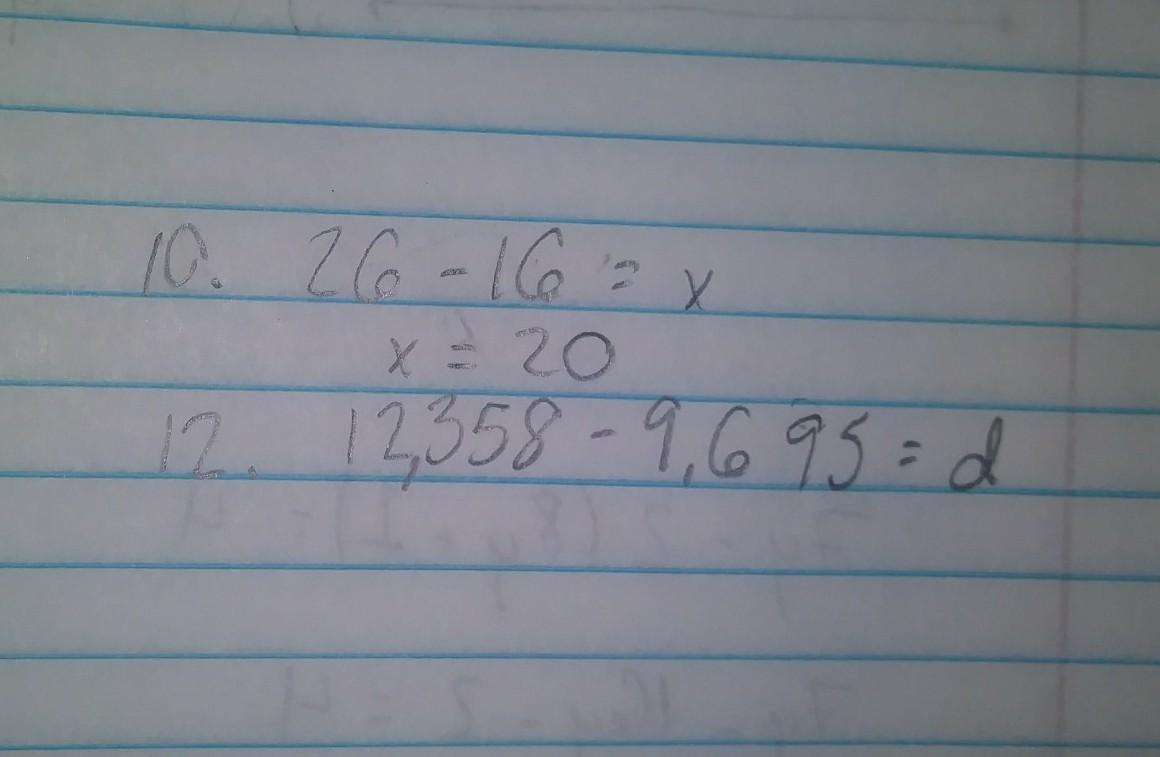 10. 26 - 16 = x
x = 20
12. 12,358 - 9,695 = d